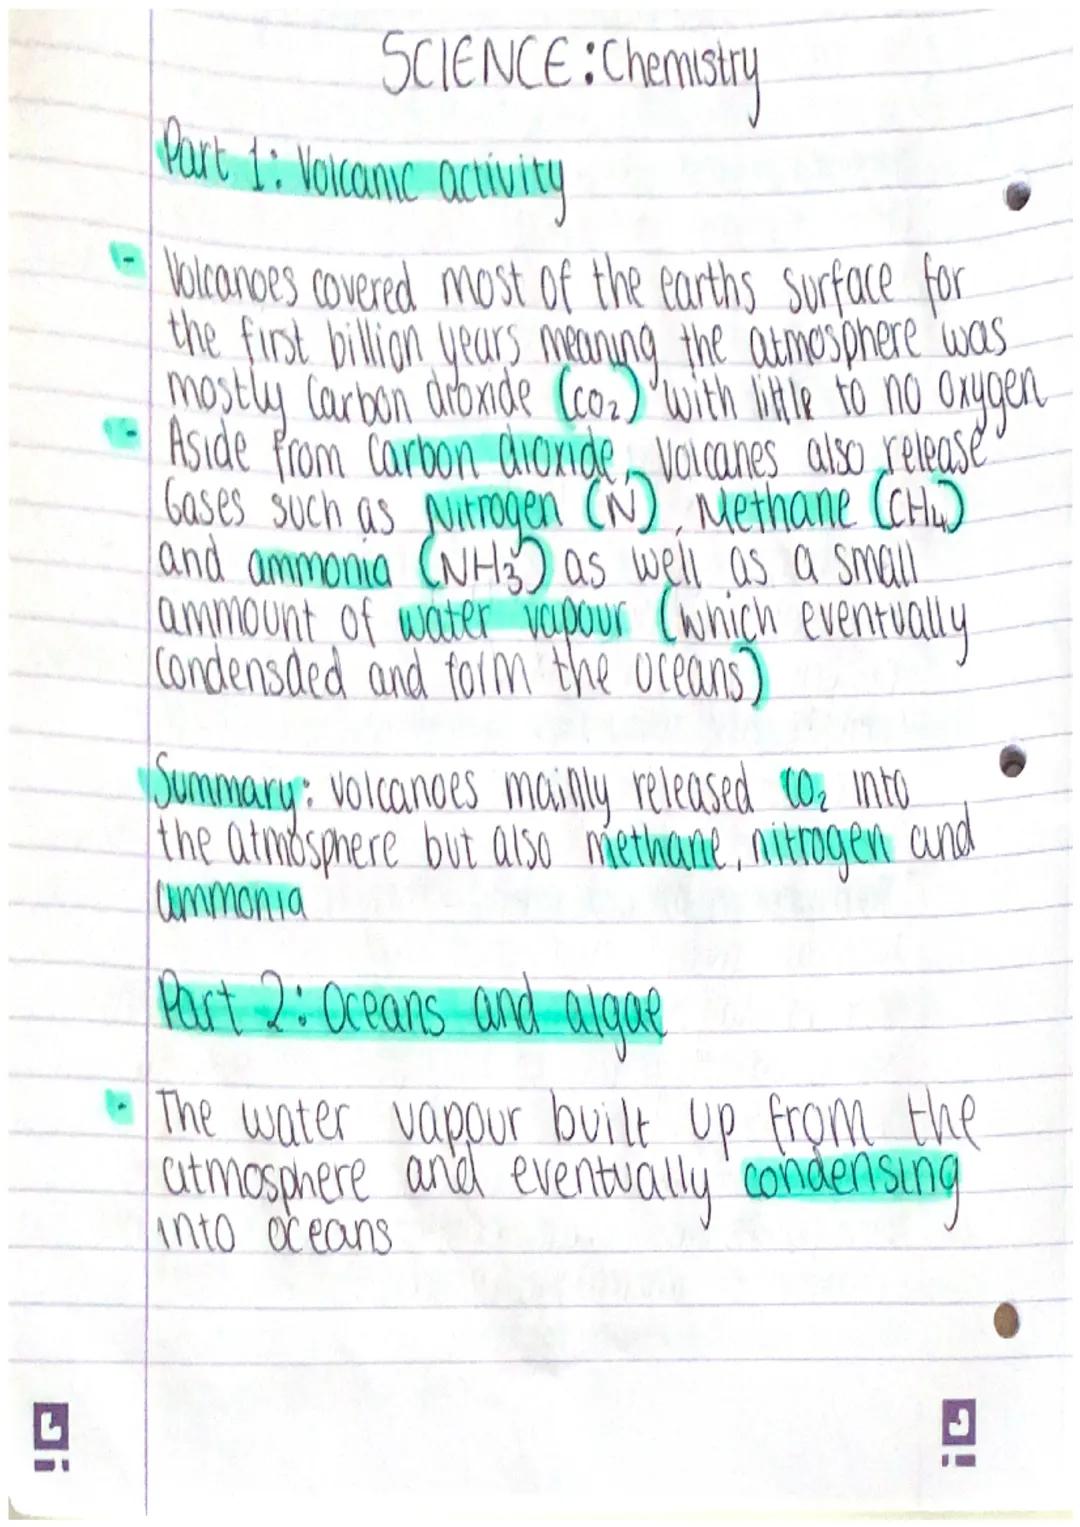 SCIENCE: Chemistry
Part 1: Volcanic activity
- Volcanoes covered most of the earths surface for
the first billion years meaning the atmosphere was
mostly Carbon dioxide (CO₂) with little to no oxygen
- Aside from Carbon dioxide, Volcanes also release
Gases such as Nitrogen (N), Methane (CH₄)
and ammonia (NH₃) as well as a small
ammount of water vapour (which eventually
Condensded and form the oceans)
Summary: Volcanoes mainly released CO₂ into
the atmosphere but also methane, nitrogen and
ammonia
Part 2: Oceans and algae
- The water vapour built up from the
atmosphere and eventually condensing
into oceans